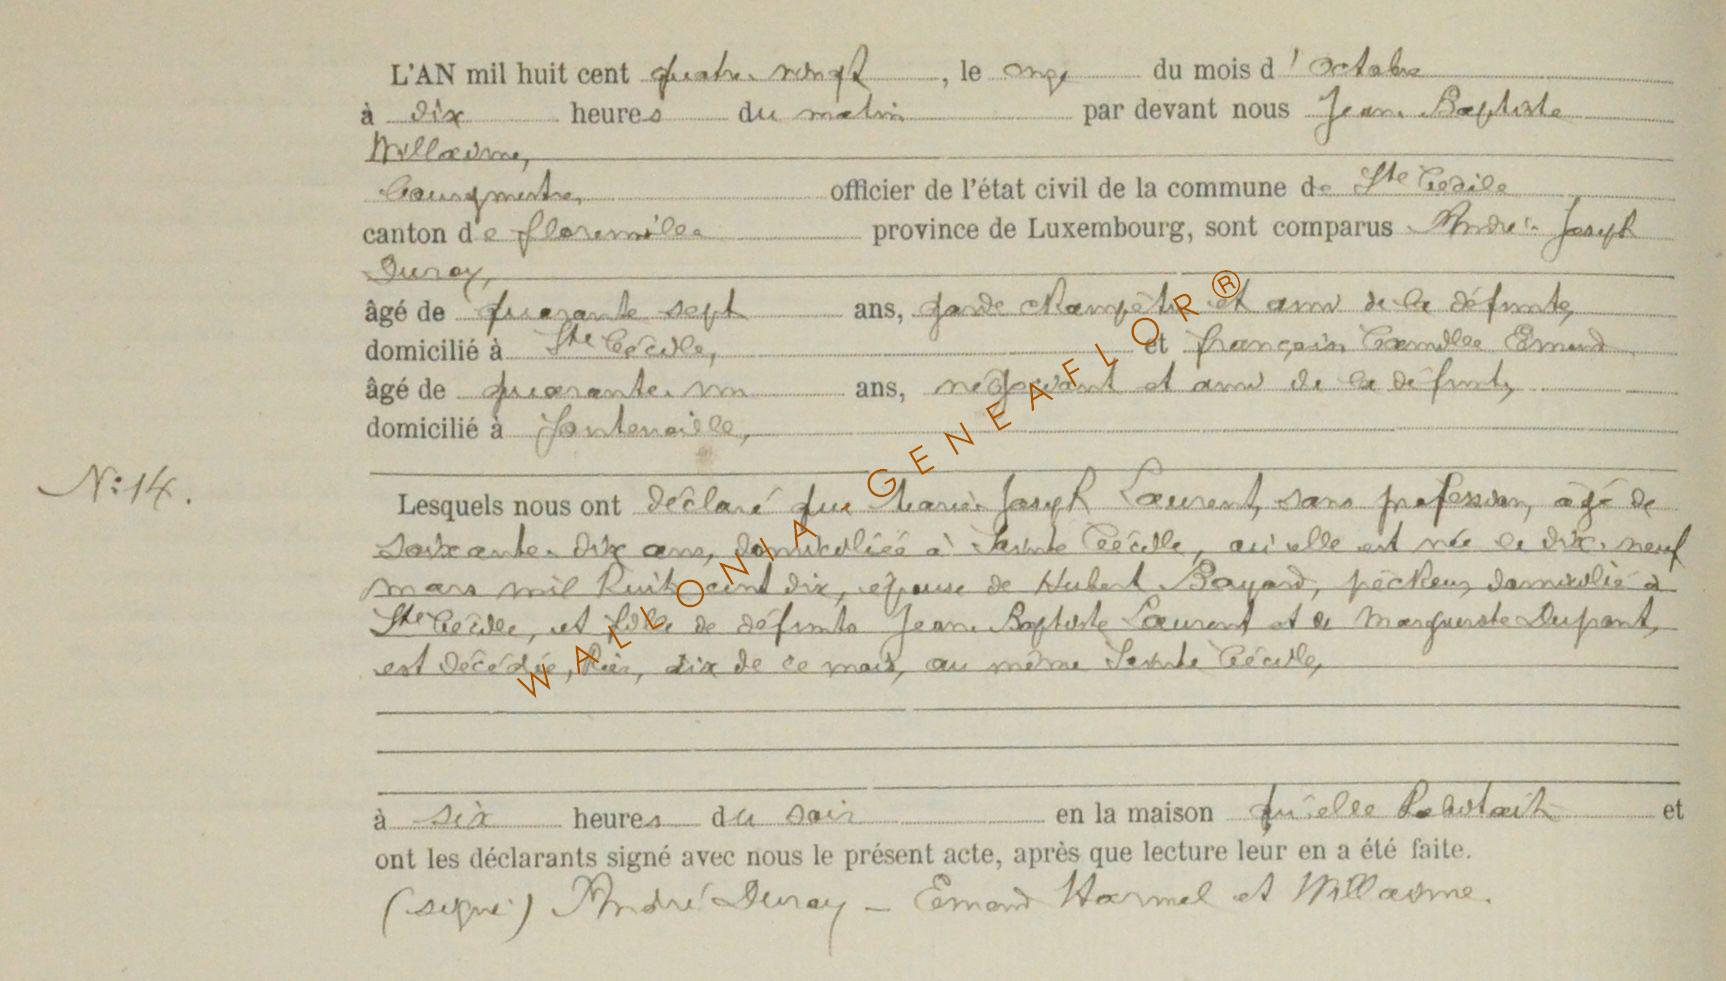 L'AN mil huit cent quatre-vingt, le onze du mois d'octobre
à dix heures du matin par devant nous Jean-Baptiste
Willaime,
bourgmestre, officier de l'état civil de la commune de Ste Cécile
canton de Florenville province de Luxembourg, sont comparus André-Joseph
Duroy,
âgé de quarante sept ans, garde champêtre et ami de la défunte,
domicilié à Ste Cécile, et François Camille Emond
âgé de quarante-un ans, négociant et ami de la défunte,
domicilié à Fontenoille,
N: 14.
Lesquels nous ont déclaré que Marie-Joseph Laurent, sans profession, âgé de
soixante-dix ans, domiciliée à Sainte Cécile, où elle est née le dix-neuf
mars mil huit cent dix, épouse de Hubert Bayard, pêcheur, domicilié à
Ste Cécile, et fille de défunts Jean-Baptiste Laurent et de Marguerite Dupont,
est décédée, hier, dix de ce mois, au même Sainte Cécile,
à six heures du soir en la maison qu'elle habitait et
ont les déclarants signé avec nous le présent acte, après que lecture leur en a été faite.
(signé) André Duroy – Emond Harmel et Willaime.
WALLONIA GENEAFLOR®